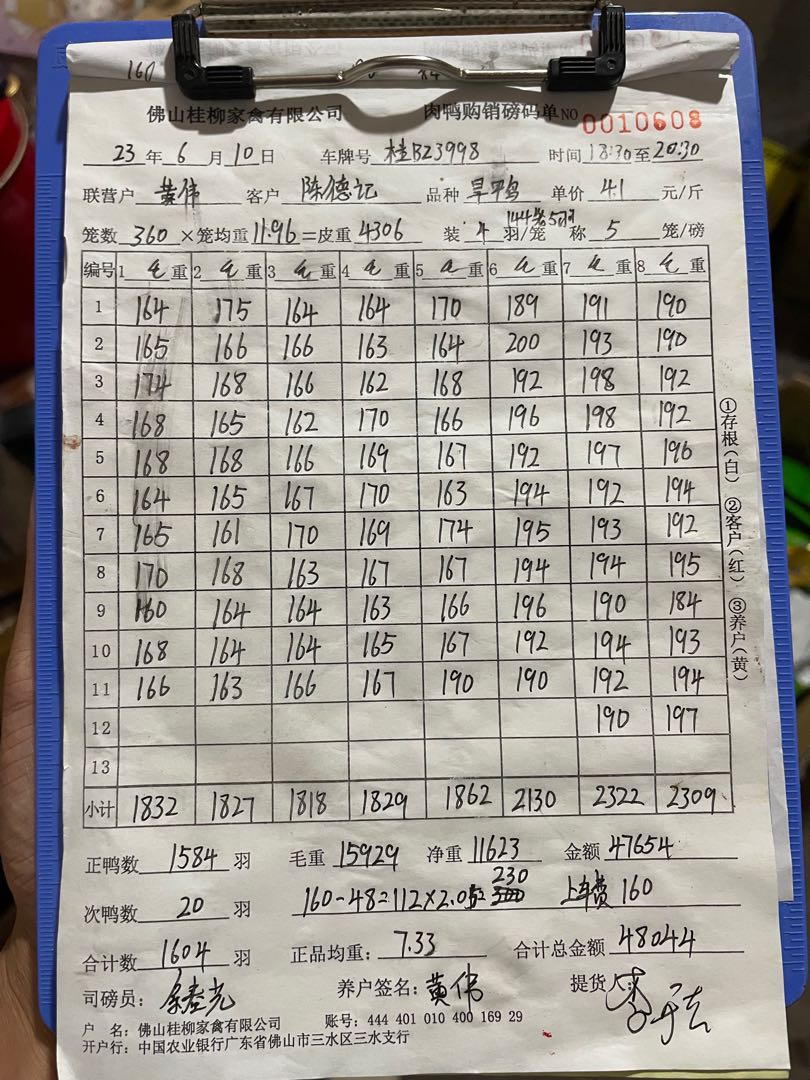 160
佛山桂柳家禽有限公司 肉鸭购销磅码单 NO 0010608
23 年 6 月 10 日 车牌号 桂B23998 时间 18:30 至 20:30
联营户 黄伟 客户 陈德记 品种 旱鸭 单价 4.1 元/斤
笼数 360 ×笼均重 11.96 =皮重 4306 装 4 羽/笼 144笼5羽 称 5 笼/磅
编号 1 毛 重 2 毛 重 3 毛 重 4 毛 重 5 毛 重 6 毛 重 7 毛 重 8 毛 重
1 164 175 164 164 170 189 191 190
2 165 166 166 163 164 200 193 190
3 174 168 166 162 168 192 198 192
4 168 165 162 170 166 196 198 192
5 168 168 166 169 167 192 197 196
6 164 165 167 170 163 194 192 194
7 165 161 170 169 174 195 193 192
8 170 168 163 167 167 194 194 195
9 160 164 164 163 166 196 190 184
10 168 164 164 165 167 192 194 193
11 166 163 166 167 190 190 192 194
12 190 197
13
小计 1832 1827 1818 1829 1862 2130 2322 2309
①存根(白) ②客户(红) ③养户(黄)
正鸭数 1584 羽 毛重 15929 净重 11623 金额 47654
次鸭数 20 羽 160-48=112×2.05= 230 上车费 160
合计数 1604 羽 正品均重: 7.33 合计总金额 48044
司磅员: 养户签名: 黄伟 提货人:
户 名: 佛山桂柳家禽有限公司 账号: 444 401 010 400 169 29
开户行: 中国农业银行广东省佛山市三水区三水支行